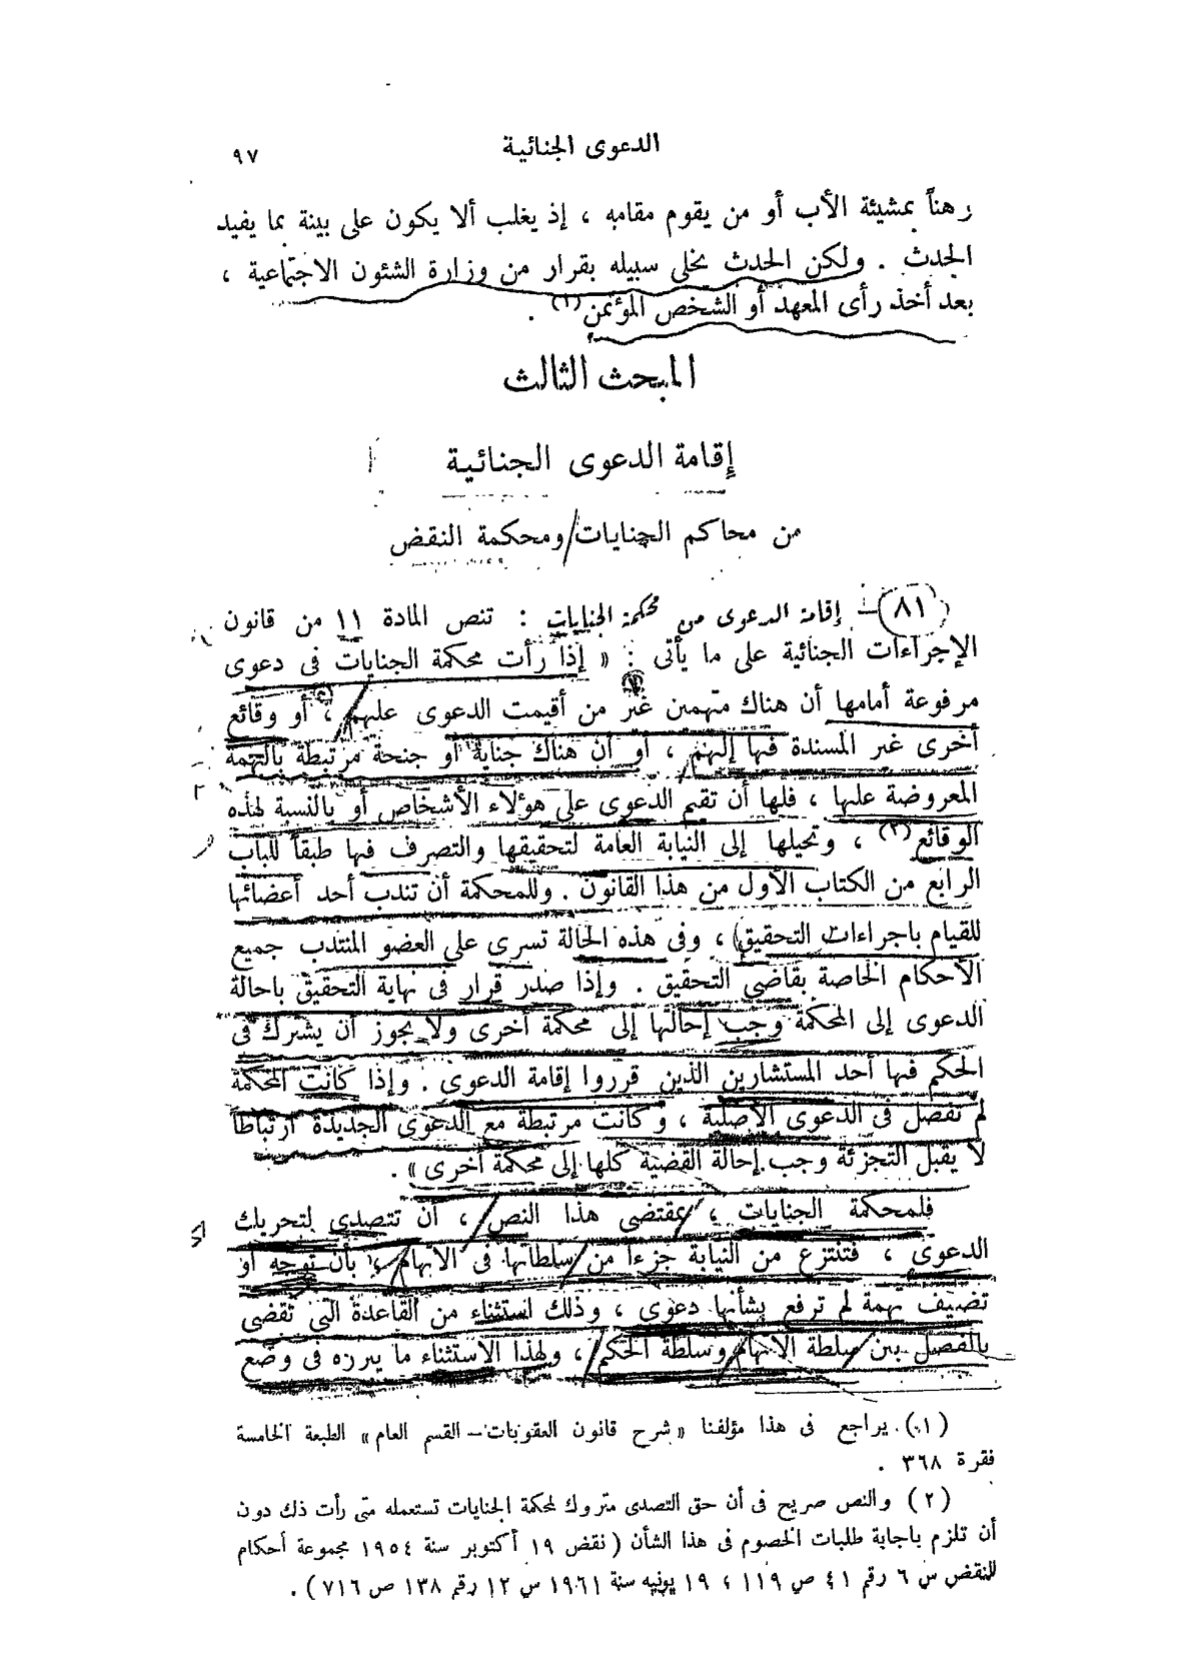 الدعوى الجنائية
٩٧
رهناً بمشيئة الأب أو من يقوم مقامه ، إذ يغلب ألا يكون على بينة بما يفيد
الحدث . ولكن الحدث يخلى سبيله بقرار من وزارة الشئون الاجتماعية ،
بعد أخذ رأى المعهد أو الشخص المؤتمن (١) .
المبحث الثالث
إقامة الدعوى الجنائية
من محاكم الجنايات ومحكمة النقض
٨١ – إقامة الدعوى من محكمة الجنايات : تنص المادة ١١ من قانون
الإجراءات الجنائية على ما يأتى : « إذا رأت محكمة الجنايات فى دعوى
مرفوعة أمامها أن هناك متهمين غير من أقيمت الدعوى عليهم ، أو وقائع
أخرى غير المسندة فيها إليهم ، أو أن هناك جناية أو جنحة مرتبطة بالتهمة
المعروضة عليها ، فلها أن تقيم الدعوى على هؤلاء الأشخاص أو بالنسبة لهذه
الوقائع (٢) ، وتحيلها إلى النيابة العامة لتحقيقها والتصرف فيها طبقاً للباب
الرابع من الكتاب الأول من هذا القانون . وللمحكمة أن تندب أحد أعضائها
للقيام باجراءات التحقيق ، وفى هذه الحالة تسرى على العضو المنتدب جميع
الأحكام الخاصة بقاضى التحقيق . وإذا صدر قرار فى نهاية التحقيق باحالة
الدعوى إلى المحكمة وجب إحالتها إلى محكمة أخرى ولا يجوز أن يشترك فى
الحكم فيها أحد المستشارين الذين قرروا إقامة الدعوى . وإذا كانت المحكمة
لم تفصل فى الدعوى الأصلية ، وكانت مرتبطة مع الدعوى الجديدة ارتباطاً
لا يقبل التجزئة وجب إحالة القضية كلها إلى محكمة أخرى » .
فلمحكمة الجنايات ، بمقتضى هذا النص ، أن تتصدى لتحريك
الدعوى ، فتنتزع من النيابة جزءاً من سلطاتها فى الاتهام ، بأن توجه أو
تضيف تهمة لم ترفع بشأنها دعوى ، وذلك استثناء من القاعدة التى تقضى
بالفصل بين سلطة الاتهام وسلطة الحكم ، ولهذا الاستثناء ما يبرره فى وضع
(١) يراجع فى هذا مؤلفنا « شرح قانون العقوبات – القسم العام » الطبعة الخامسة
فقرة ٣٦٨ .
(٢) والنص صريح فى أن حق التصدى متروك لمحكمة الجنايات تستعمله متى رأت ذلك دون
أن تلزم باجابة طلبات الخصوم فى هذا الشأن (نقض ١٩ أكتوبر سنة ١٩٥٤ مجموعة أحكام
للنقض س ٦ رقم ٤١ ص ١١٩ ، ١٩ يونيه سنة ١٩٦١ س ١٢ رقم ١٣٨ ص ٧١٦) .